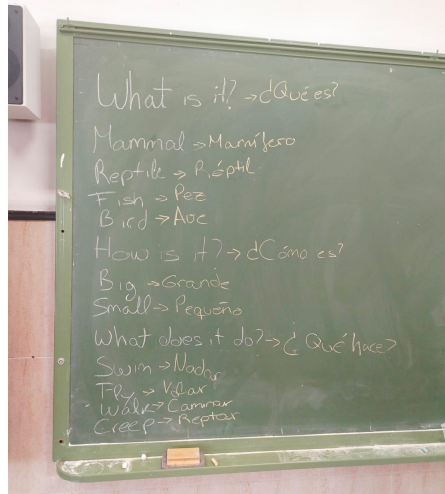 What is it? → ¿Qué es?
Mammal → Mamífero
Reptile → Réptil
Fish → Pez
Bird → Ave
How is it? → ¿Cómo es?
Big → Grande
Small → Pequeño
What does it do? → ¿Qué hace?
Swim → Nadar
Fly → Volar
Walk → Caminar
Creep → Reptar